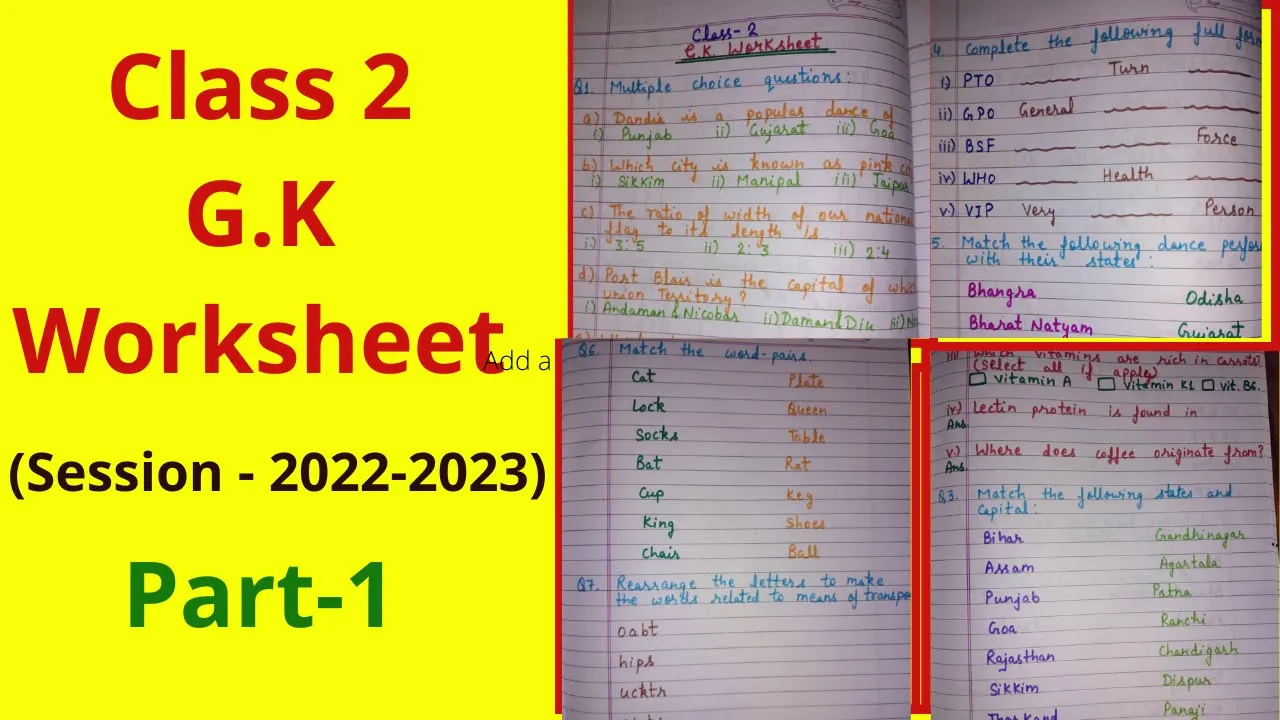 Class 2
G.K
Worksheet
Add a
(Session - 2022-2023)
Part-1
Class-2
G.K. Worksheet
Q1. Multiple choice questions:
a) Dandia is a popular dance of
i) Punjab ii) Gujarat iii) Goa
b) Which city is known as pink
i) Sikkim ii) Manipal iii) Jaipur
c) The ratio of width of our national
flag to its length is
i) 3:5 ii) 2:3 iii) 2:4
d) Port Blair is the capital of
union Territory?
i) Andaman & Nicobar ii) Daman & Diu iii)
4. Complete the following full
i) PTO Turn
ii) GPO General
iii) BSF Force
iv) WHO Health
v) VIP Very Person
5. Match the following dance
with their states:
Bhangra Odisha
Bharat Natyam Gujarat
Q6. Match the word-pairs.
Cat Plate
Lock Queen
Socks Table
Bat Rat
Cup Key
King Shoes
Chair Ball
Q7. Rearrange the letters to make
the words related to means of
oabt
hips
ucktr
iii) Which vitamins are rich in carrots?
(Select all if apply)
Vitamin A Vitamin K1 vit. B6.
iv) Lectin protein is found in
Ans.
v.) Where does coffee originate from?
Ans.
Q3. Match the following states and
Capital:
Bihar Gandhinagar
Assam Agartala
Punjab Patna
Goa Ranchi
Rajasthan Chandigarh
Sikkim Dispur
Panaji